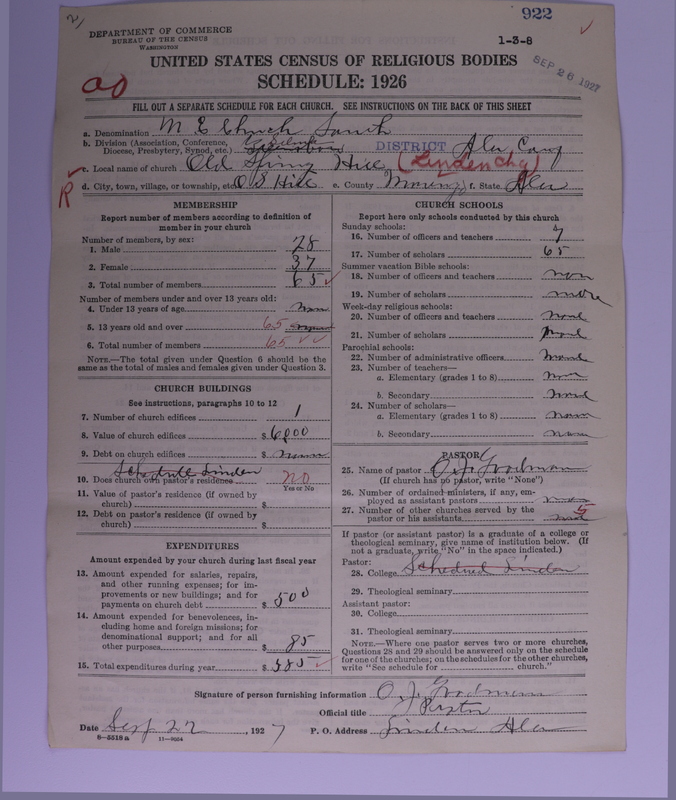 922
DEPARTMENT OF COMMERCE
BUREAU OF THE CENSUS
WASHINGTON
1-3-8
SEP 26 1927
UNITED STATES CENSUS OF RELIGIOUS BODIES
SCHEDULE: 1926
FILL OUT A SEPARATE SCHEDULE FOR EACH CHURCH. SEE INSTRUCTIONS ON THE BACK OF THIS SHEET
a. Denomination M E Church South
b. Division (Association, Conference, Diocese, Presbytery, Synod, etc.) DISTRICT Ala Conf
c. Local name of church Old Spring Hill (Linden Chg)
d. City, town, village, or township, etc. O S Hill e. County Marengo f. State Ala
R
MEMBERSHIP
Report number of members according to definition of member in your church
Number of members, by sex:
1. Male 28
2. Female 37
3. Total number of members 65
Number of members under and over 13 years old:
4. Under 13 years of age none
5. 13 years old and over 65
6. Total number of members 65
NOTE.—The total given under Question 6 should be the same as the total of males and females given under Question 3.
CHURCH BUILDINGS
See instructions, paragraphs 10 to 12
7. Number of church edifices 1
8. Value of church edifices $ 6000
9. Debt on church edifices $ none
Schedule Linden
10. Does church own pastor's residence No
Yes or No
11. Value of pastor's residence (if owned by church) $
12. Debt on pastor's residence (if owned by church) $
EXPENDITURES
Amount expended by your church during last fiscal year
13. Amount expended for salaries, repairs, and other running expenses; for improvements or new buildings; and for payments on church debt $ 500
14. Amount expended for benevolences, including home and foreign missions; for denominational support; and for all other purposes $ 85
15. Total expenditures during year $ 585
CHURCH SCHOOLS
Report here only schools conducted by this church
Sunday schools:
16. Number of officers and teachers 7
17. Number of scholars 65
Summer vacation Bible schools:
18. Number of officers and teachers non
19. Number of scholars none
Week-day religious schools:
20. Number of officers and teachers none
21. Number of scholars none
Parochial schools:
22. Number of administrative officers none
23. Number of teachers—
a. Elementary (grades 1 to 8) none
b. Secondary none
24. Number of scholars—
a. Elementary (grades 1 to 8) none
b. Secondary none
PASTOR
25. Name of pastor O. J. Goodman
(If church has no pastor, write "None")
26. Number of ordained ministers, if any, employed as assistant pastors none
27. Number of other churches served by the pastor or his assistants 5
If pastor (or assistant pastor) is a graduate of a college or theological seminary, give name of institution below. (If not a graduate, write "No" in the space indicated.)
Pastor:
28. College Schedule Linden
29. Theological seminary
Assistant pastor:
30. College
31. Theological seminary
NOTE.—Where one pastor serves two or more churches, Questions 28 and 29 should be answered only on the schedule for one of the churches; on the schedules for the other churches, write "See schedule for church."
Signature of person furnishing information O. J. Goodman
Official title Pastor
Date Sep 22, 1927 P. O. Address Linden Ala
8—5518 a 11—9054